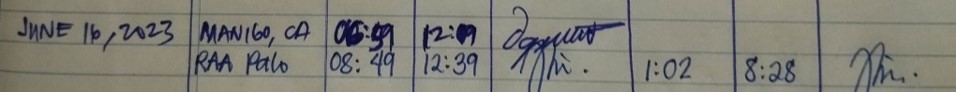 JUNE 16, 2023 MANIGO, CA 06:59 12:09
RAA Palo 08:49 12:39 1:02 8:28